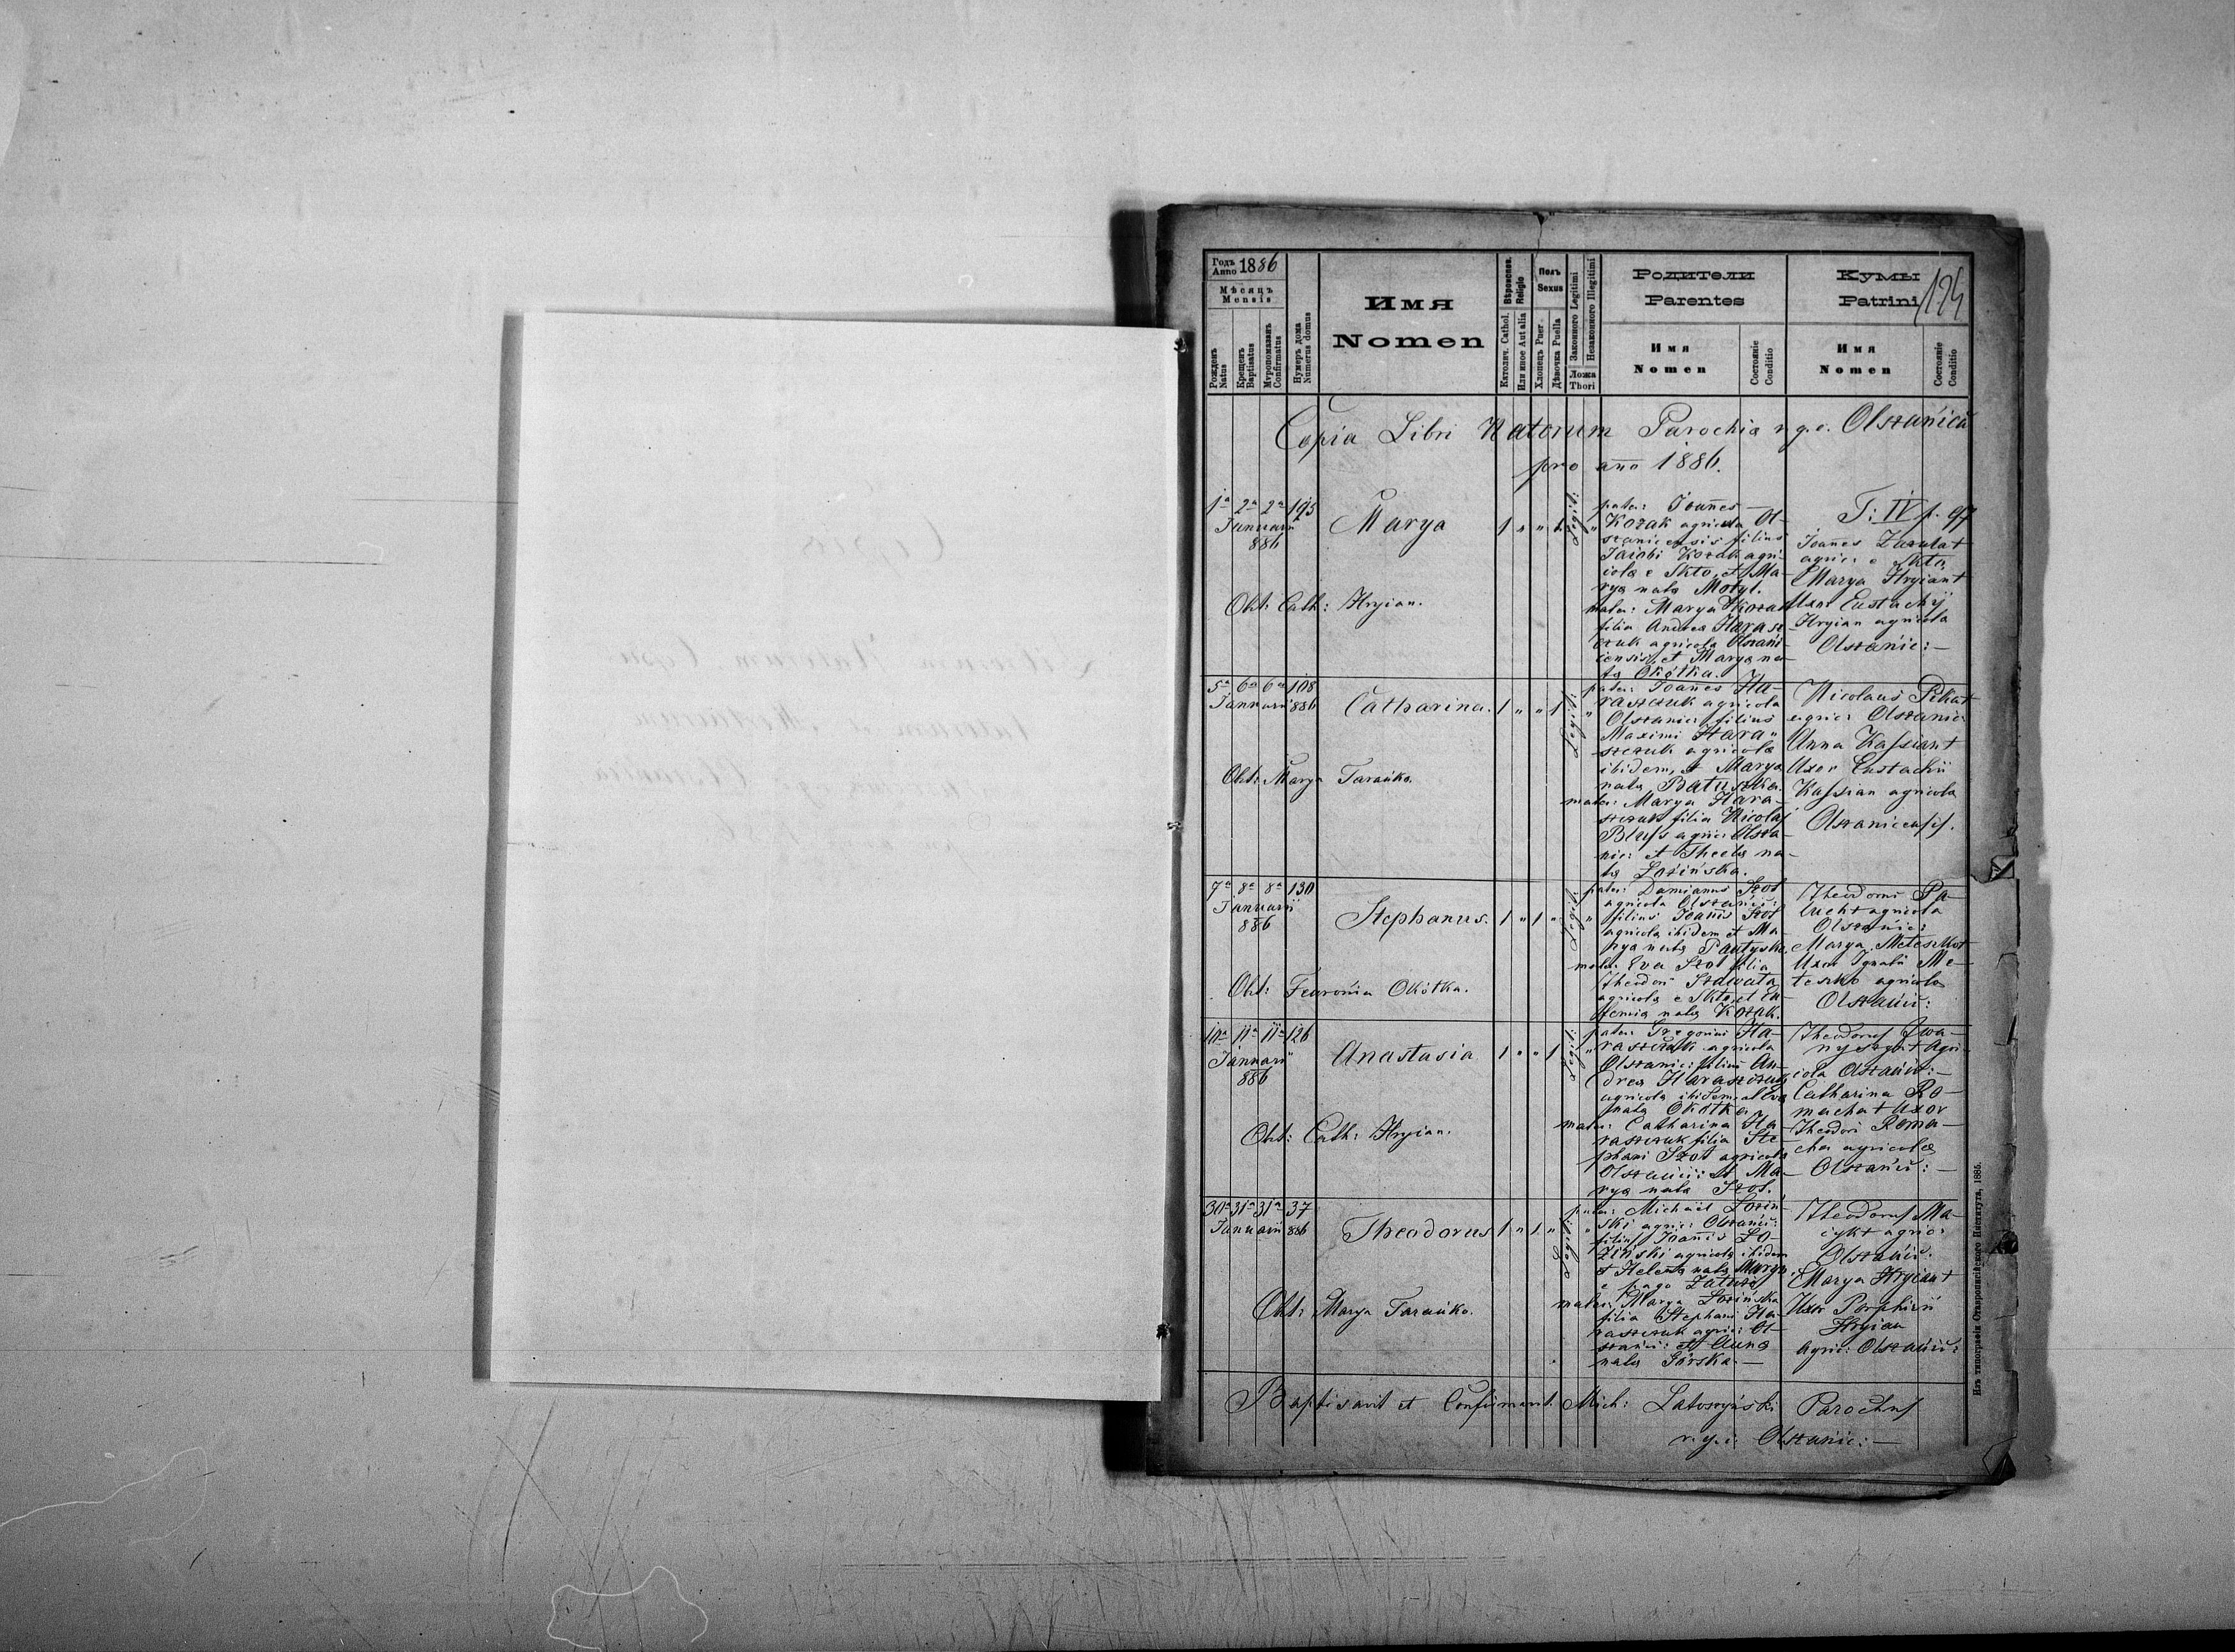 Годъ Anno 1886
Мѣсяцъ
Mensis
Рожденъ Natus
Крещенъ Baptisatus
Мѵропомазанъ Confirmatus
Нумеръ дома Numerus domus
Имя
Nomen
Вѣроиспов. Religio
Католич. Cathol.
Или иное Aut alia
Полъ
Sexus
Хлопецъ Puer
Дѣвочка Puella
Законного Legitimi
Незаконного Illegitimi
Ложа
Thori
Родители
Parentes
Имя
Nomen
Состояніе Conditio
Кумы
Patrini
124
Имя
Nomen
Состояніе Conditio
Copia Libri Natorum Parochia r. g. c. Olszanica
pro anno 1886.
1a 2a 2a 195
Januarii
886
Marya
1 " " 1
Legit:
pater: Joannes
Kozak agricola Ol-
szanicensis filius
Jacobi Kozak agri-
cola e Skto, et Ma-
rya nata Motyl.
mater: Marya Kozak
filia Andrea Harasz-
czuk agricola Olszani-
censis, et Marya na-
ta Okótka.
T: IV p. 97
Joannes +
agric: e Skto,
Marya Hryian +
Uxor Eustachij
Hryian agricola
Olszanic: —
Obt: Cath: Hryian.
5a 6a 6a 108
Januarii 886
Catharina.
1 " " 1
Legit:
pater: Joannes Ha-
raszczuk agricola
Olszanic: filius
Maximi Hara-
szczuk agricola
ibidem, et Marya
nata Batuszka.
mater: Marya Hara-
szczuk filia Nicolai
Bluss agric: Olsza-
nic: et Thecla na-
ta Łozińska.
Nicolaus Pikat +
agric: Olszanic:
Anna Kassian +
Uxor Eustachii
Kassian agricola
Olszanicensis.
Obt: Marya Tarańko.
7a 8a 8a 130
Januarii
886
Stephanus.
1 " 1 "
Legit:
pater: Damianus Szot
agricola Olszanic:
filius Joannis Szot
agricola ibidem et Ma-
rya nata
mater: Eva Szot filia
Theodori
agricola e Skto, et Eu-
femia nata Kozak.
Theodorus Pa-
luch + agricola
Olszanic:
Marya Meteszko +
Uxor Ignatii Me-
teszko agricola
Olszanic:
Obt: Fewronia Okótka.
10a 11a 11a 126
Januarii
886
Anastasia
1 " " 1
Legit:
pater: Gregorius Ha-
raszczuk agricola
Olszanic: filius An-
drea Haraszczuk
agricola ibidem et Eva
nata Okótka
mater: Catharina Ha-
raszczuk filia Ste-
phani Szot agricola
Olszanic: et Ma-
rya nata Szot.
Theodorus Iwa-
nyszyn + agri-
cola Olszanic: —
Catharina Ro-
macha + Uxor
Theodori Roma-
cha agricola
Olszanic: —
Obt: Cath: Hryian.
30a 31a 31a 37
Januarii 886
Theodorus
1 " 1 "
Legit:
pater: Michael Łoziń-
ski agric: Olszanic:
filius Joannis Ło-
ziński agricola ibidem
et Helena nata
e pago
mater: Marya Łozińska
filia Stephani Ha-
raszczuk agric: Ol-
szanic: et Anna
nata Górska. —
Theodorus Ma-
cyk + agric:
Olszanic:
Marya Hryian +
Uxor Porphirii
Hryian
agric: Olszanic:
Obt: Marya Tarańko.
Baptisavit et Confirmavit Mich: Parochus
r. g. c. Olszanic: —
Изъ типографіи Ставропигійского Института, 1885.